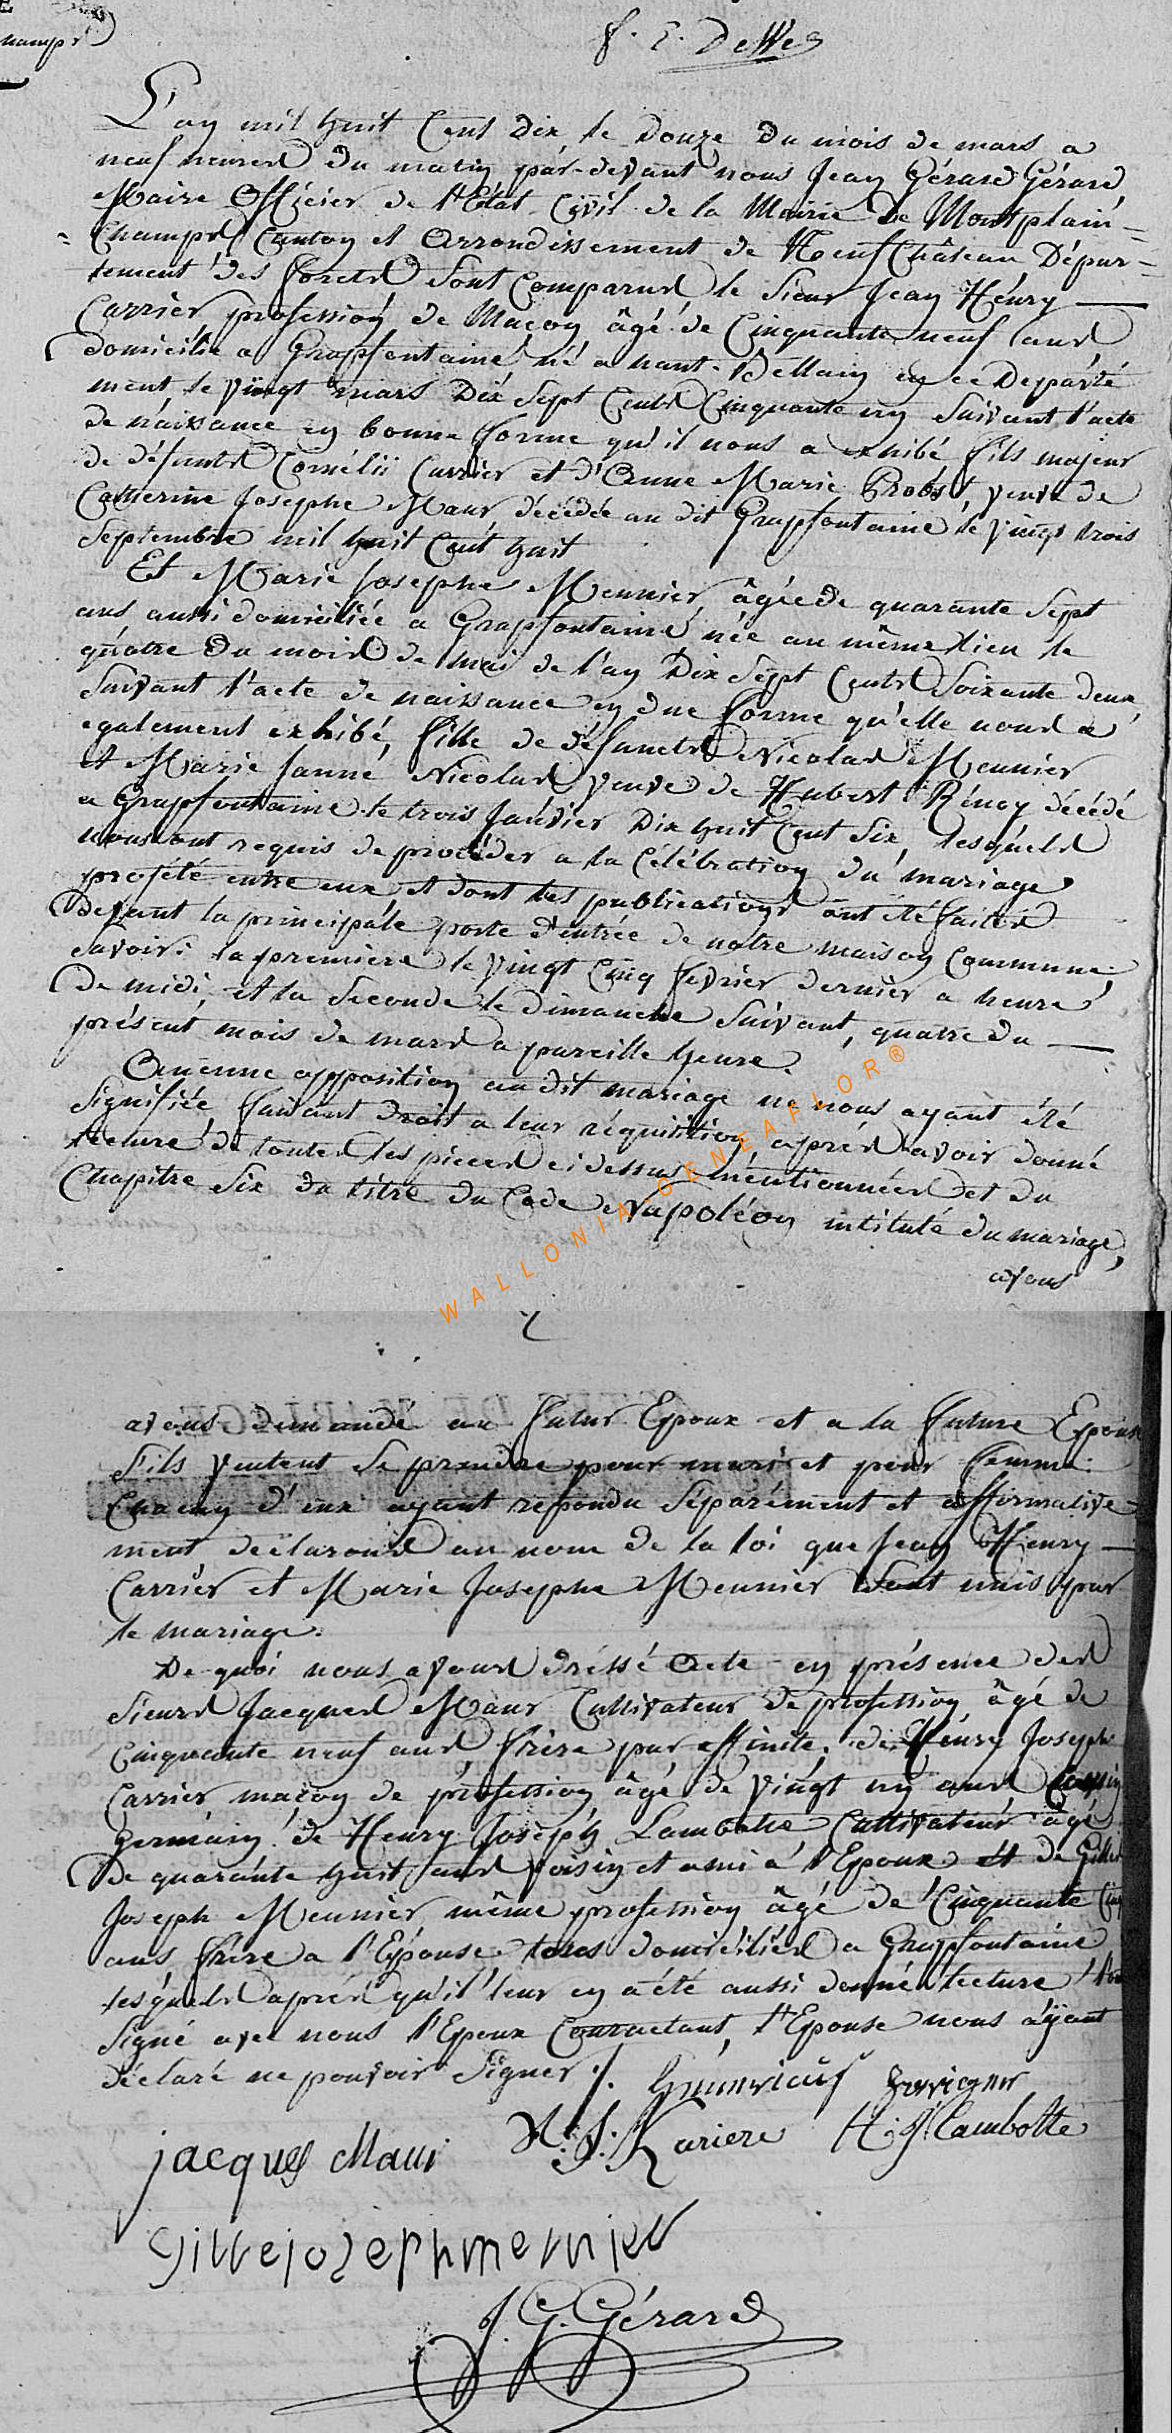 f. E. DeWes
L'an mil huit Cent Dix, le Douze du mois de mars a
neuf heures du matin par-devant nous Jean Gérard Gérard,
Maire Officier de l'Etat Civil de la Mairie de Montplain-
-Champs Canton et Arrondissement de Neufchâteau Dépar-
tement des forets Sont Comparus, le Sieur Jean Hénry
Carrier profession de Maçon âgé de Cinquante neuf ans
domicilié a Grapfontaine né a haut-Bellain en ce Departe
ment, le vingt mars Dix Sept Cents Cinquante un Suivant l'acte
de naissance en bonne forme qu'il nous a exhibé fils majeur
de défunts Cornélii Carrier et d'Anne Marie Probst, veuve de
Catherine Josephe Maur décédée au dit Grapfontaine le vingt trois
Septembre mil huit Cent huit
Et Marie Josephe Meunier, âgée de quarante Sept
ans, aussi domiciliée a Grapfontaine née au même lieu le
quatre du mois de mai de l'an Dix Sept Cents Soixante deux
Suivant l'acte de naissance en due forme qu'elle nous a
également exhibé, fille de défuncts Nicolas Meunier
et Marie Janné Nicolas veuve de Hubert Rénoy décédé
a Grapfontaine le trois Janvier Dix huit Cent Six, lesquels
nous ont requis de procéder a la Célébration du mariage
projété entre eux, et dont les publications ont été faites
Devant la principale porte d'entrée de notre maison Commune
savoir: la première le vingt Cinq fevrier dernier a heure
De midi, et la Seconde le dimanche Suivant, quatre du
présent mois de mars a pareille heure.
Aucunne opposition au dit mariage ne nous ayant été
Signifiée, faisant droit a leur réquisition, aprés avoir donné
lecture de toutes les pieces ci dessus mentionnées et du
Chapitre Six du titre du Code Napoléon intitulé du mariage,
avons
WALLONIA-GENEAFLOR®
avons demandé au futur Epoux et a la future Epouse
S'ils veulent Se prendre pour mari et pour femme:
Chacun d'eux ayant répondu Séparément et affirmative-
ment declarons au nom de la loi que Jean Henry
Carrier et Marie Josephe Meunier Sont unis par
le mariage.
De quoi nous avons dréssé Acte en présence des
Sieurs Jacques Maur Cultivateur de profession âgé de
Cinquante neuf ans frère par affinité, de Hénry Joseph
Carrier maçon de profession âgé de vingt un ans Cousin
Germain, de Henry Joseph Lambotte Cultivateur âgé
De quarante huit ans voisin et ami a l'Epoux et de Gilles
Joseph Meunier même profession âgé de Cinquante Cinq
ans frère a l'Epouse tous domiciliés a Grapfontaine
lesquels aprés qu'il leur en a été aussi donné lecture l'ont
Signé avec nous l'Epoux Contractant, l'Epouse nous aÿant
déclaré ne pouvoir Signer ./.
jacques Maur H: J: Kariere H. J. Lambotte
Gillejosephmeunier
J. G. Gérard